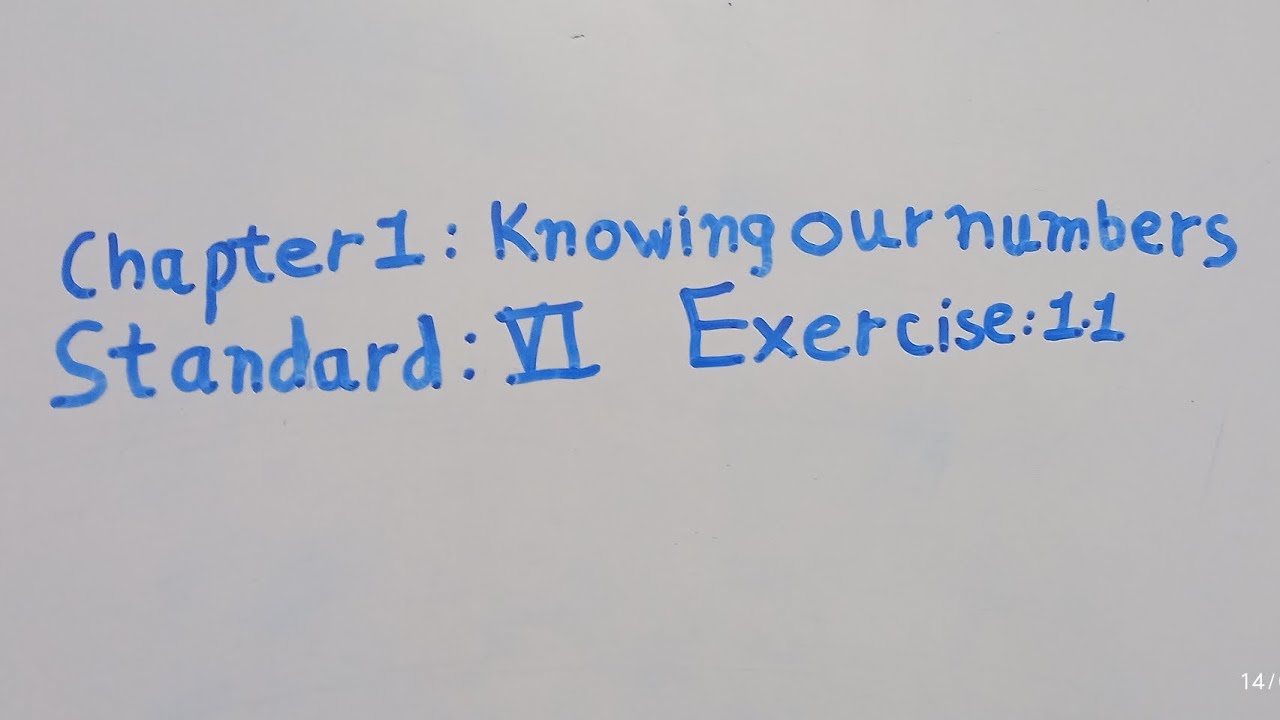 Chapter 1: Knowing our numbers
Standard: VI Exercise: 1.1
14/